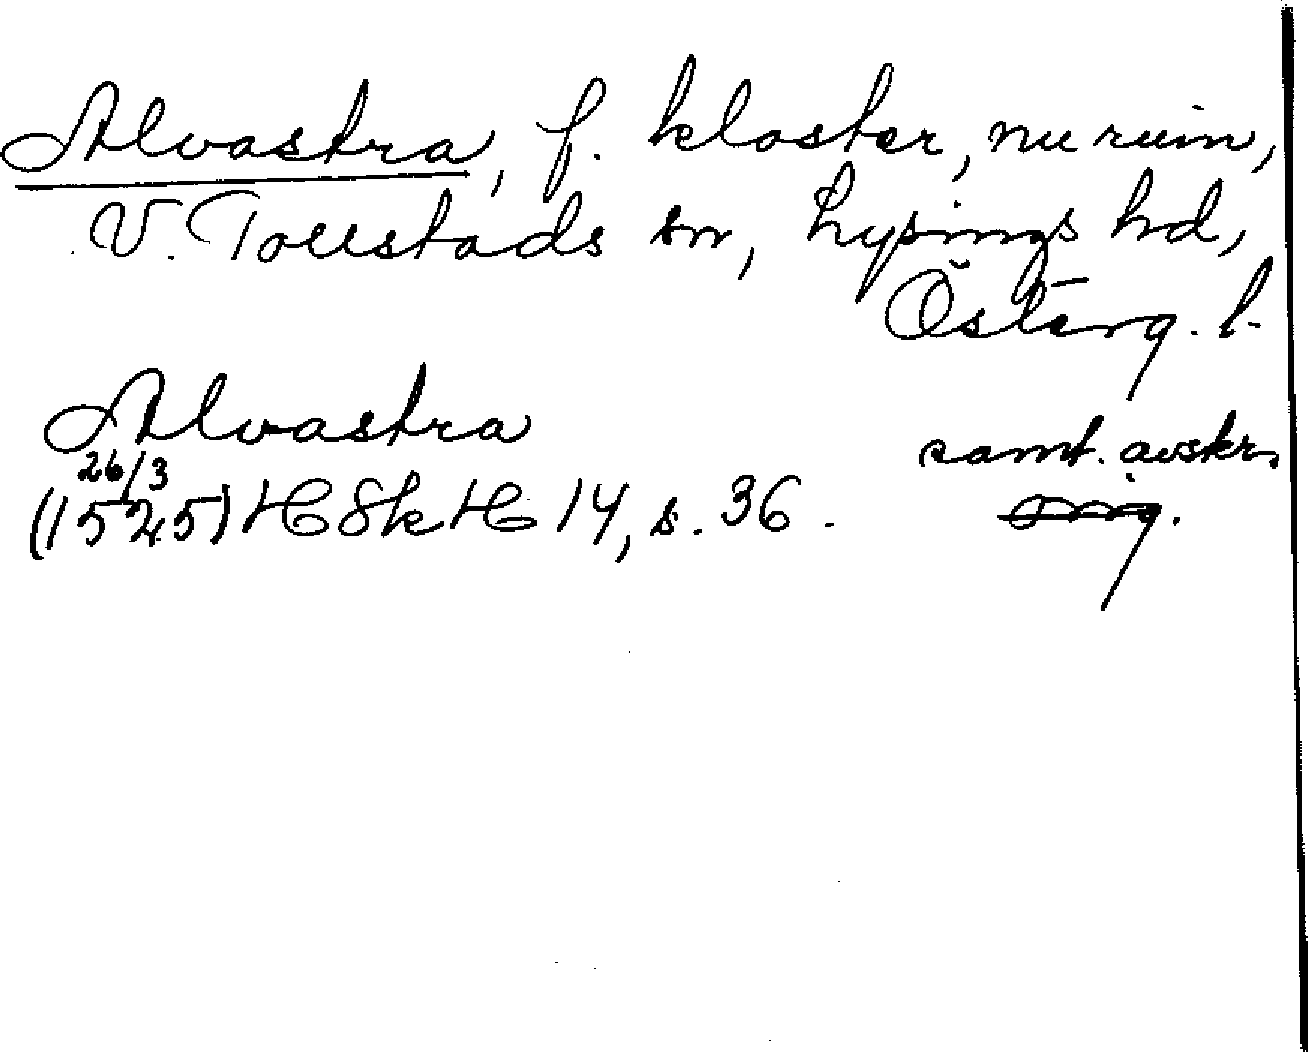 Alvastra, f. kloster, nu ruin,
V. Tollstads sn, Lysings hd,
Österg. l.
Alvastra
samt. avskr.
26/3
(1525) HSkH 14, s. 36.
orig.